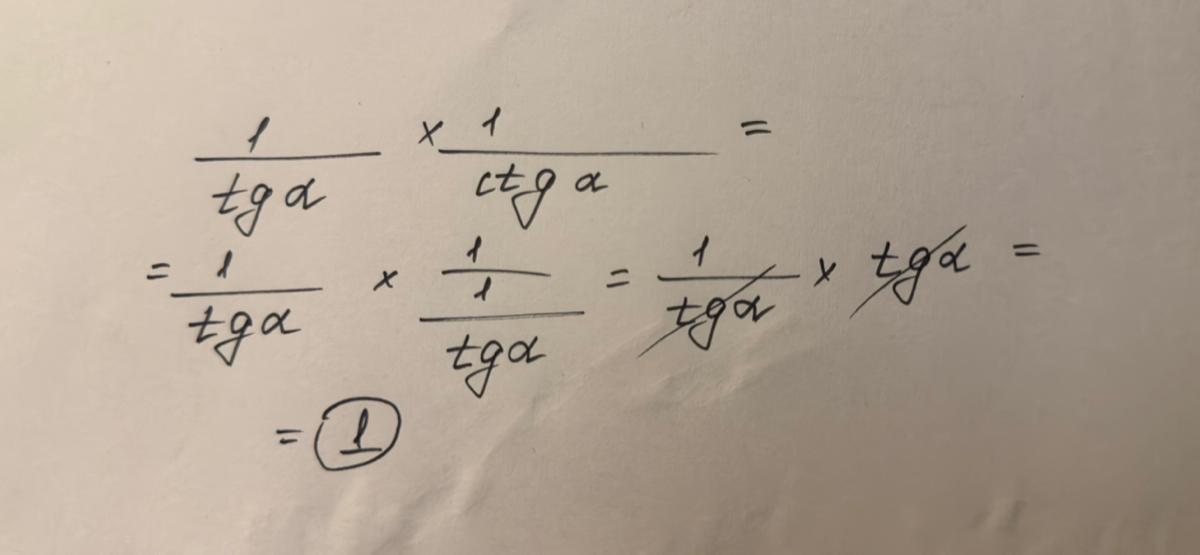 1/tg α × 1/ctg α =
= 1/tg α × 1/(1/tg α) = 1/tg α × tg α =
= 1